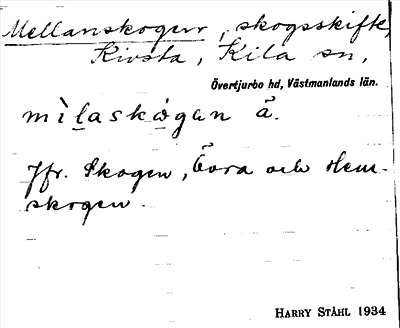 Mellanskogen, skogsskifte,
Kivsta, Kila sn,
Övertjurbo hd, Västmanlands län.
mìlaskògan ä̃.
Jfr. Skogen, Bora och Hem-
skogen.
HARRY STÅHL 1934